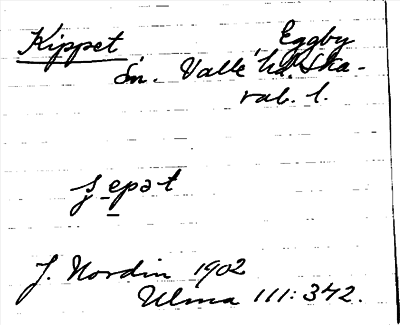 Kippet Eggby
Sn. Valle hd. Ska-
rab. l.
ʂepət
J. Nordin 1902
Ulma 111:342.